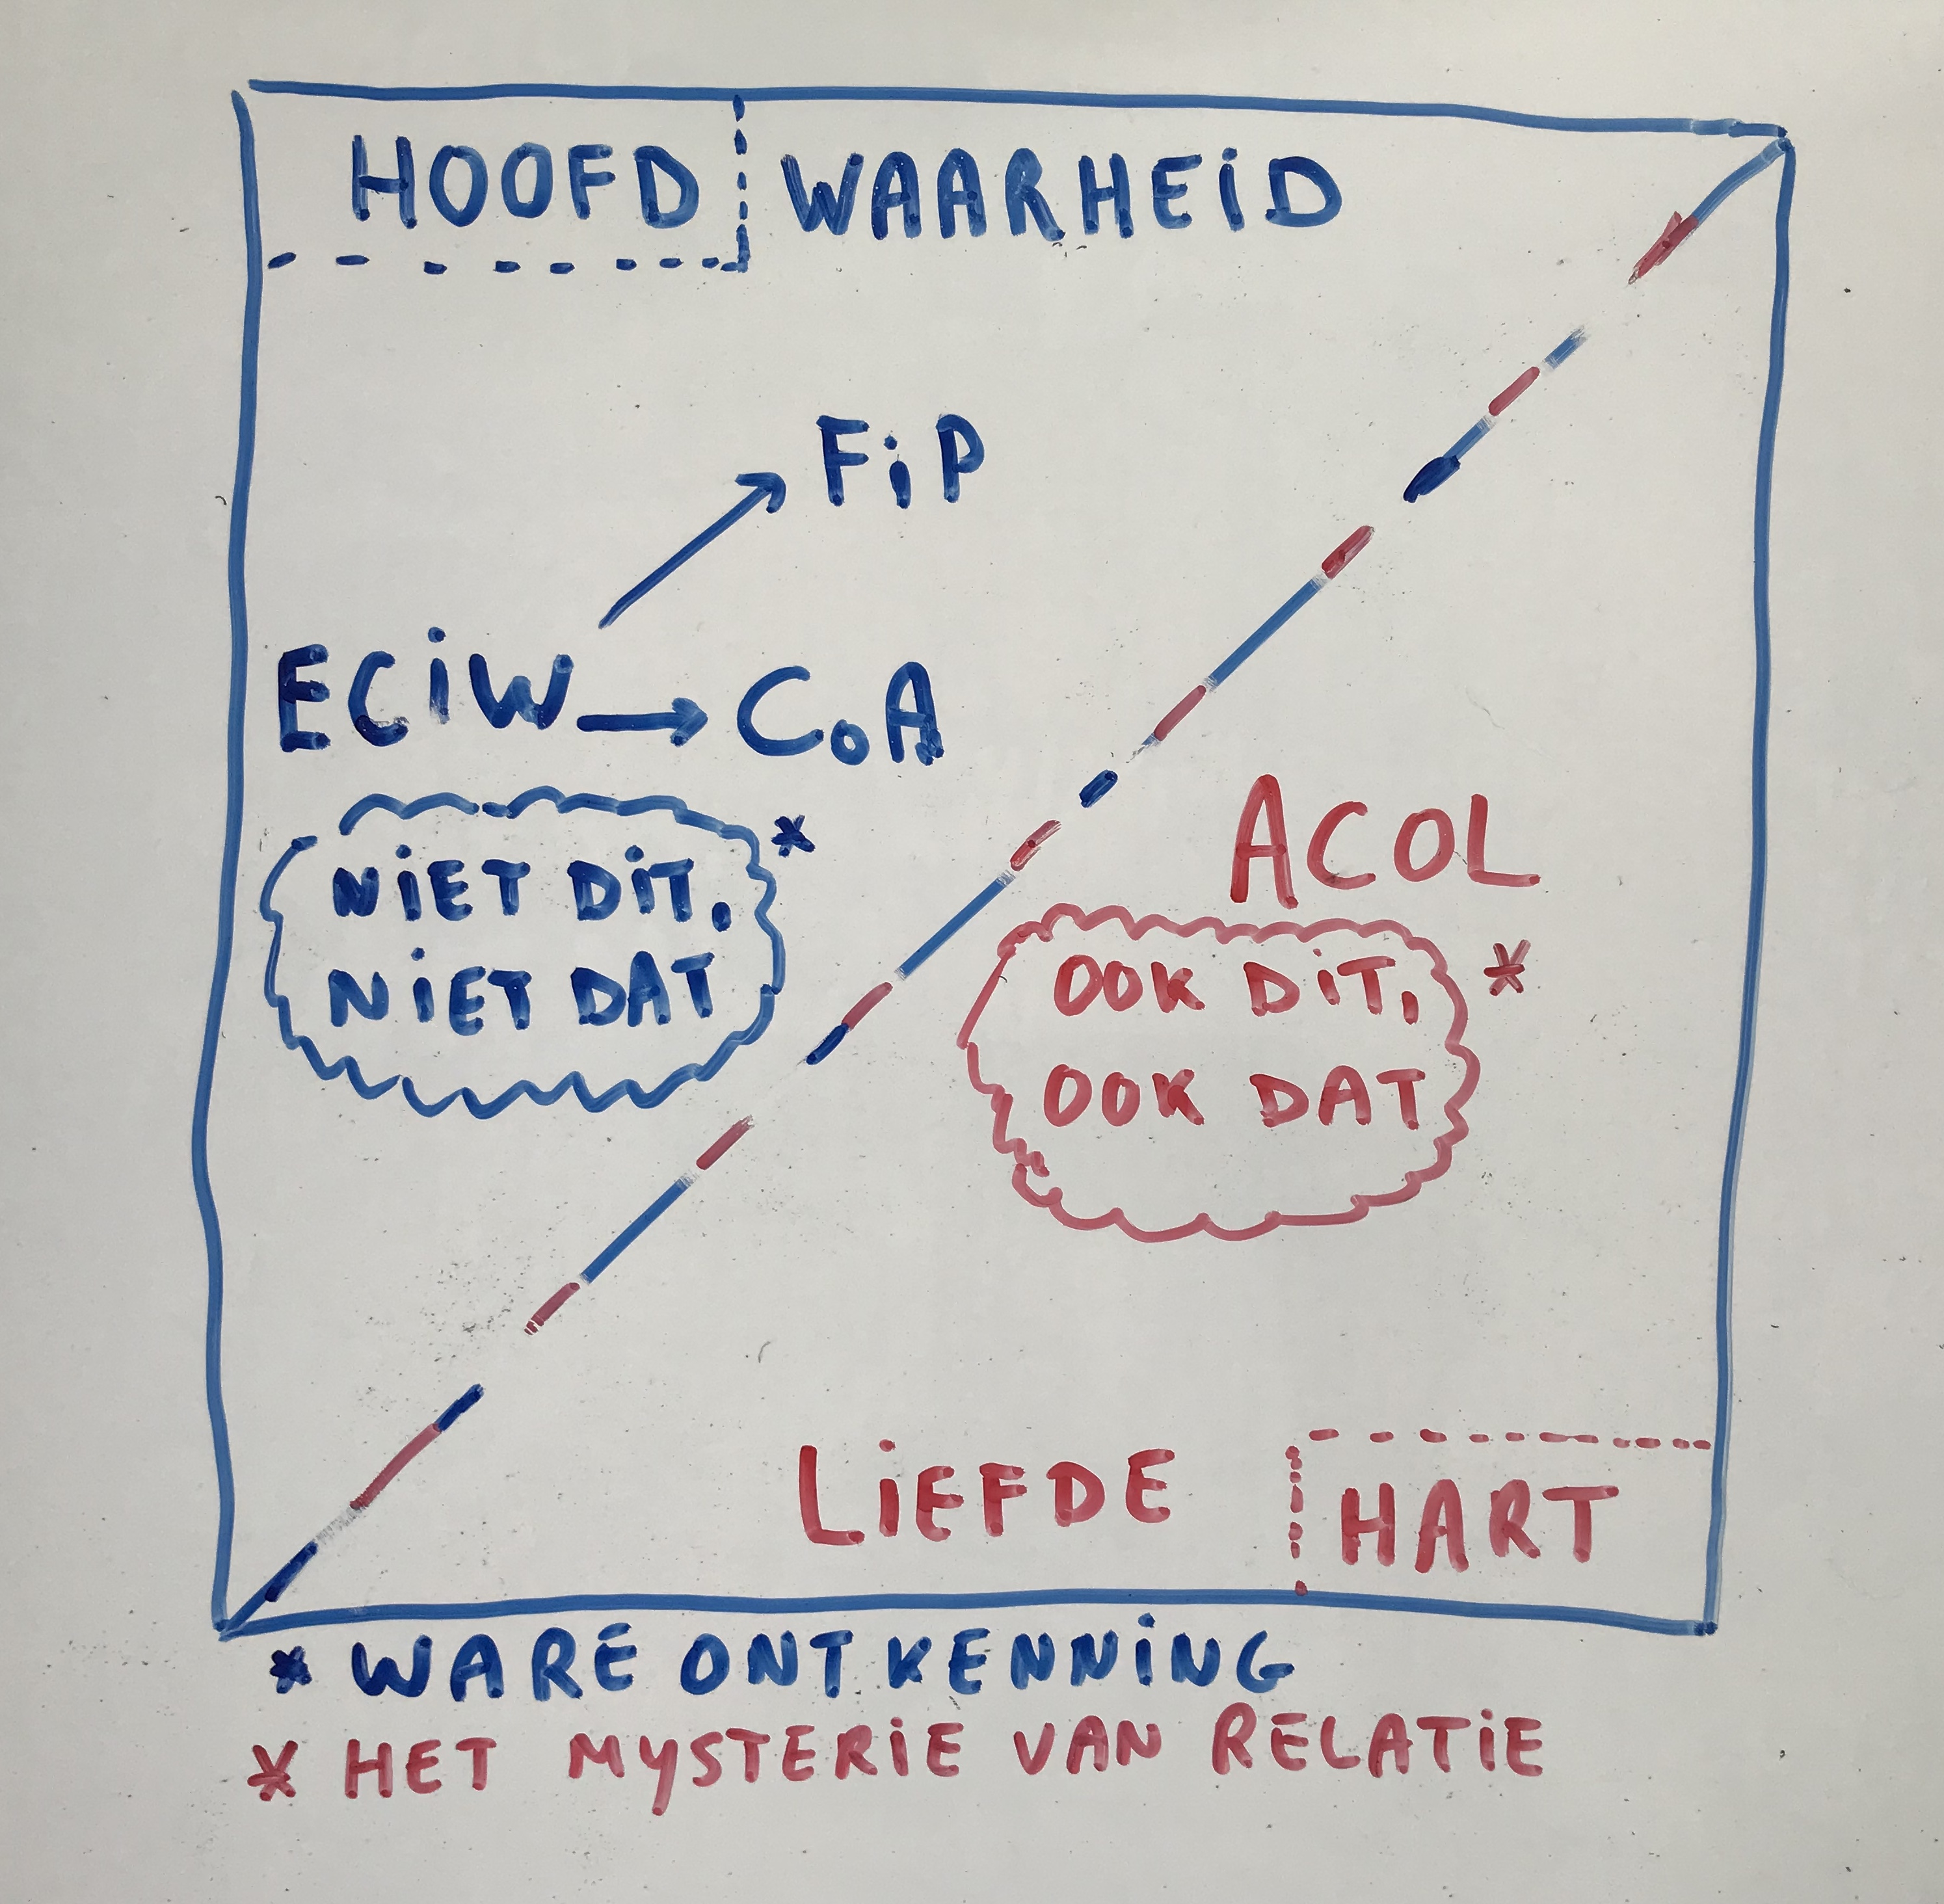 HOOFD WAARHEID
FiP
ECiW → CoA
NiET DiT, *
NiET DAT
ACOL
OOK DiT, *
OOK DAT
LiEFDE HART
* WARE ONTKENNiNG
* HET MYSTERiE VAN RELATiE